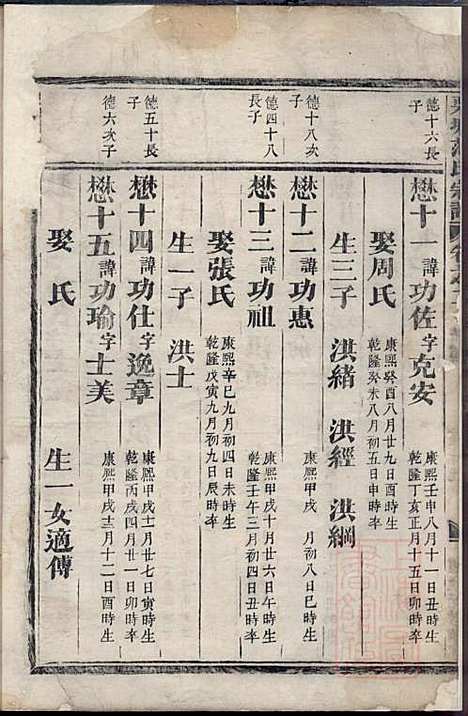 德十六長子
懋十一諱功佐字克安
康熙壬申八月十一日丑時生
乾隆丁亥正月十五日卯時卒
娶周氏
康熙癸酉八月廿九日酉時生
乾隆癸未八月初五日申時卒
生三子 洪緒 洪經 洪綱
德十八次子
懋十二諱功惠
康熙甲戌 月初八日巳時生
德四十八長子
懋十三諱功祖
康熙甲戌十月廿六日午時生
乾隆壬午三月初四日丑時卒
娶張氏
康熙辛巳九月初四日未時生
乾隆戊寅九月初九日辰時卒
生一子 洪士
德五十長子
懋十四諱功仕字逸章
康熙甲戌十一月廿七日寅時生
乾隆丙戌四月廿一日卯時卒
德六次子
懋十五諱功瑜字士美
康熙甲戌十二月十二日酉時生
娶 氏
生一女適傳